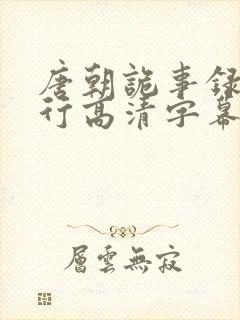 唐朝詭事録
行高清字幕
層雲無寂